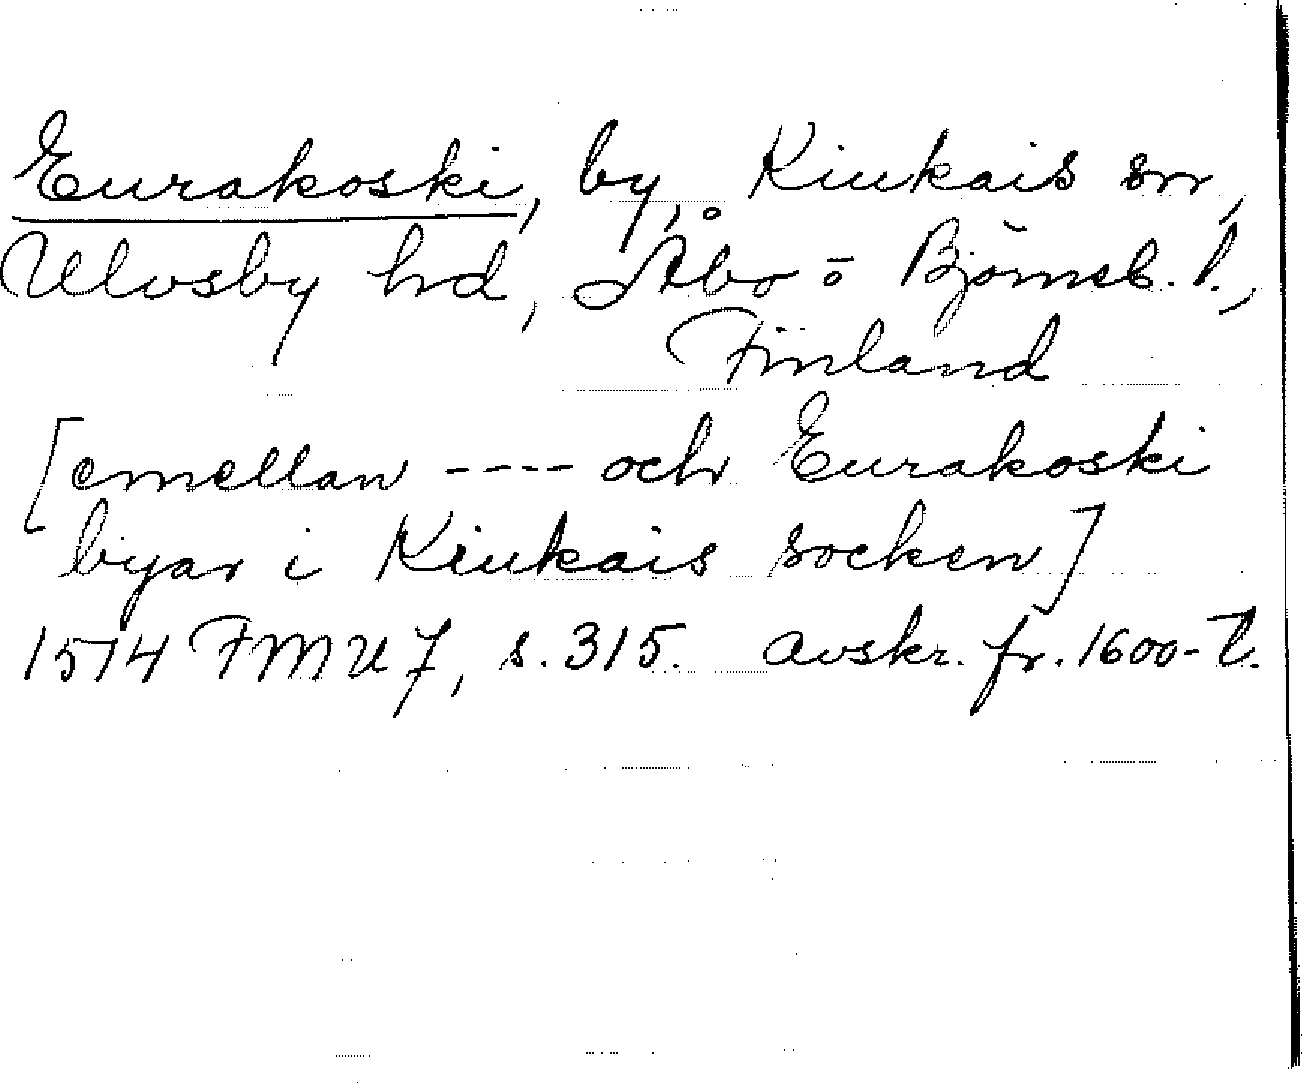 Eurakoski, by, Kiukais sn,
Ulvsby hd, Åbo o Björneb. l.,
Finland
[emellan ---- och Eurakoski
byar i Kiukais socken]
1574 FMU 7, s. 315. avskr. fr. 1600-t.